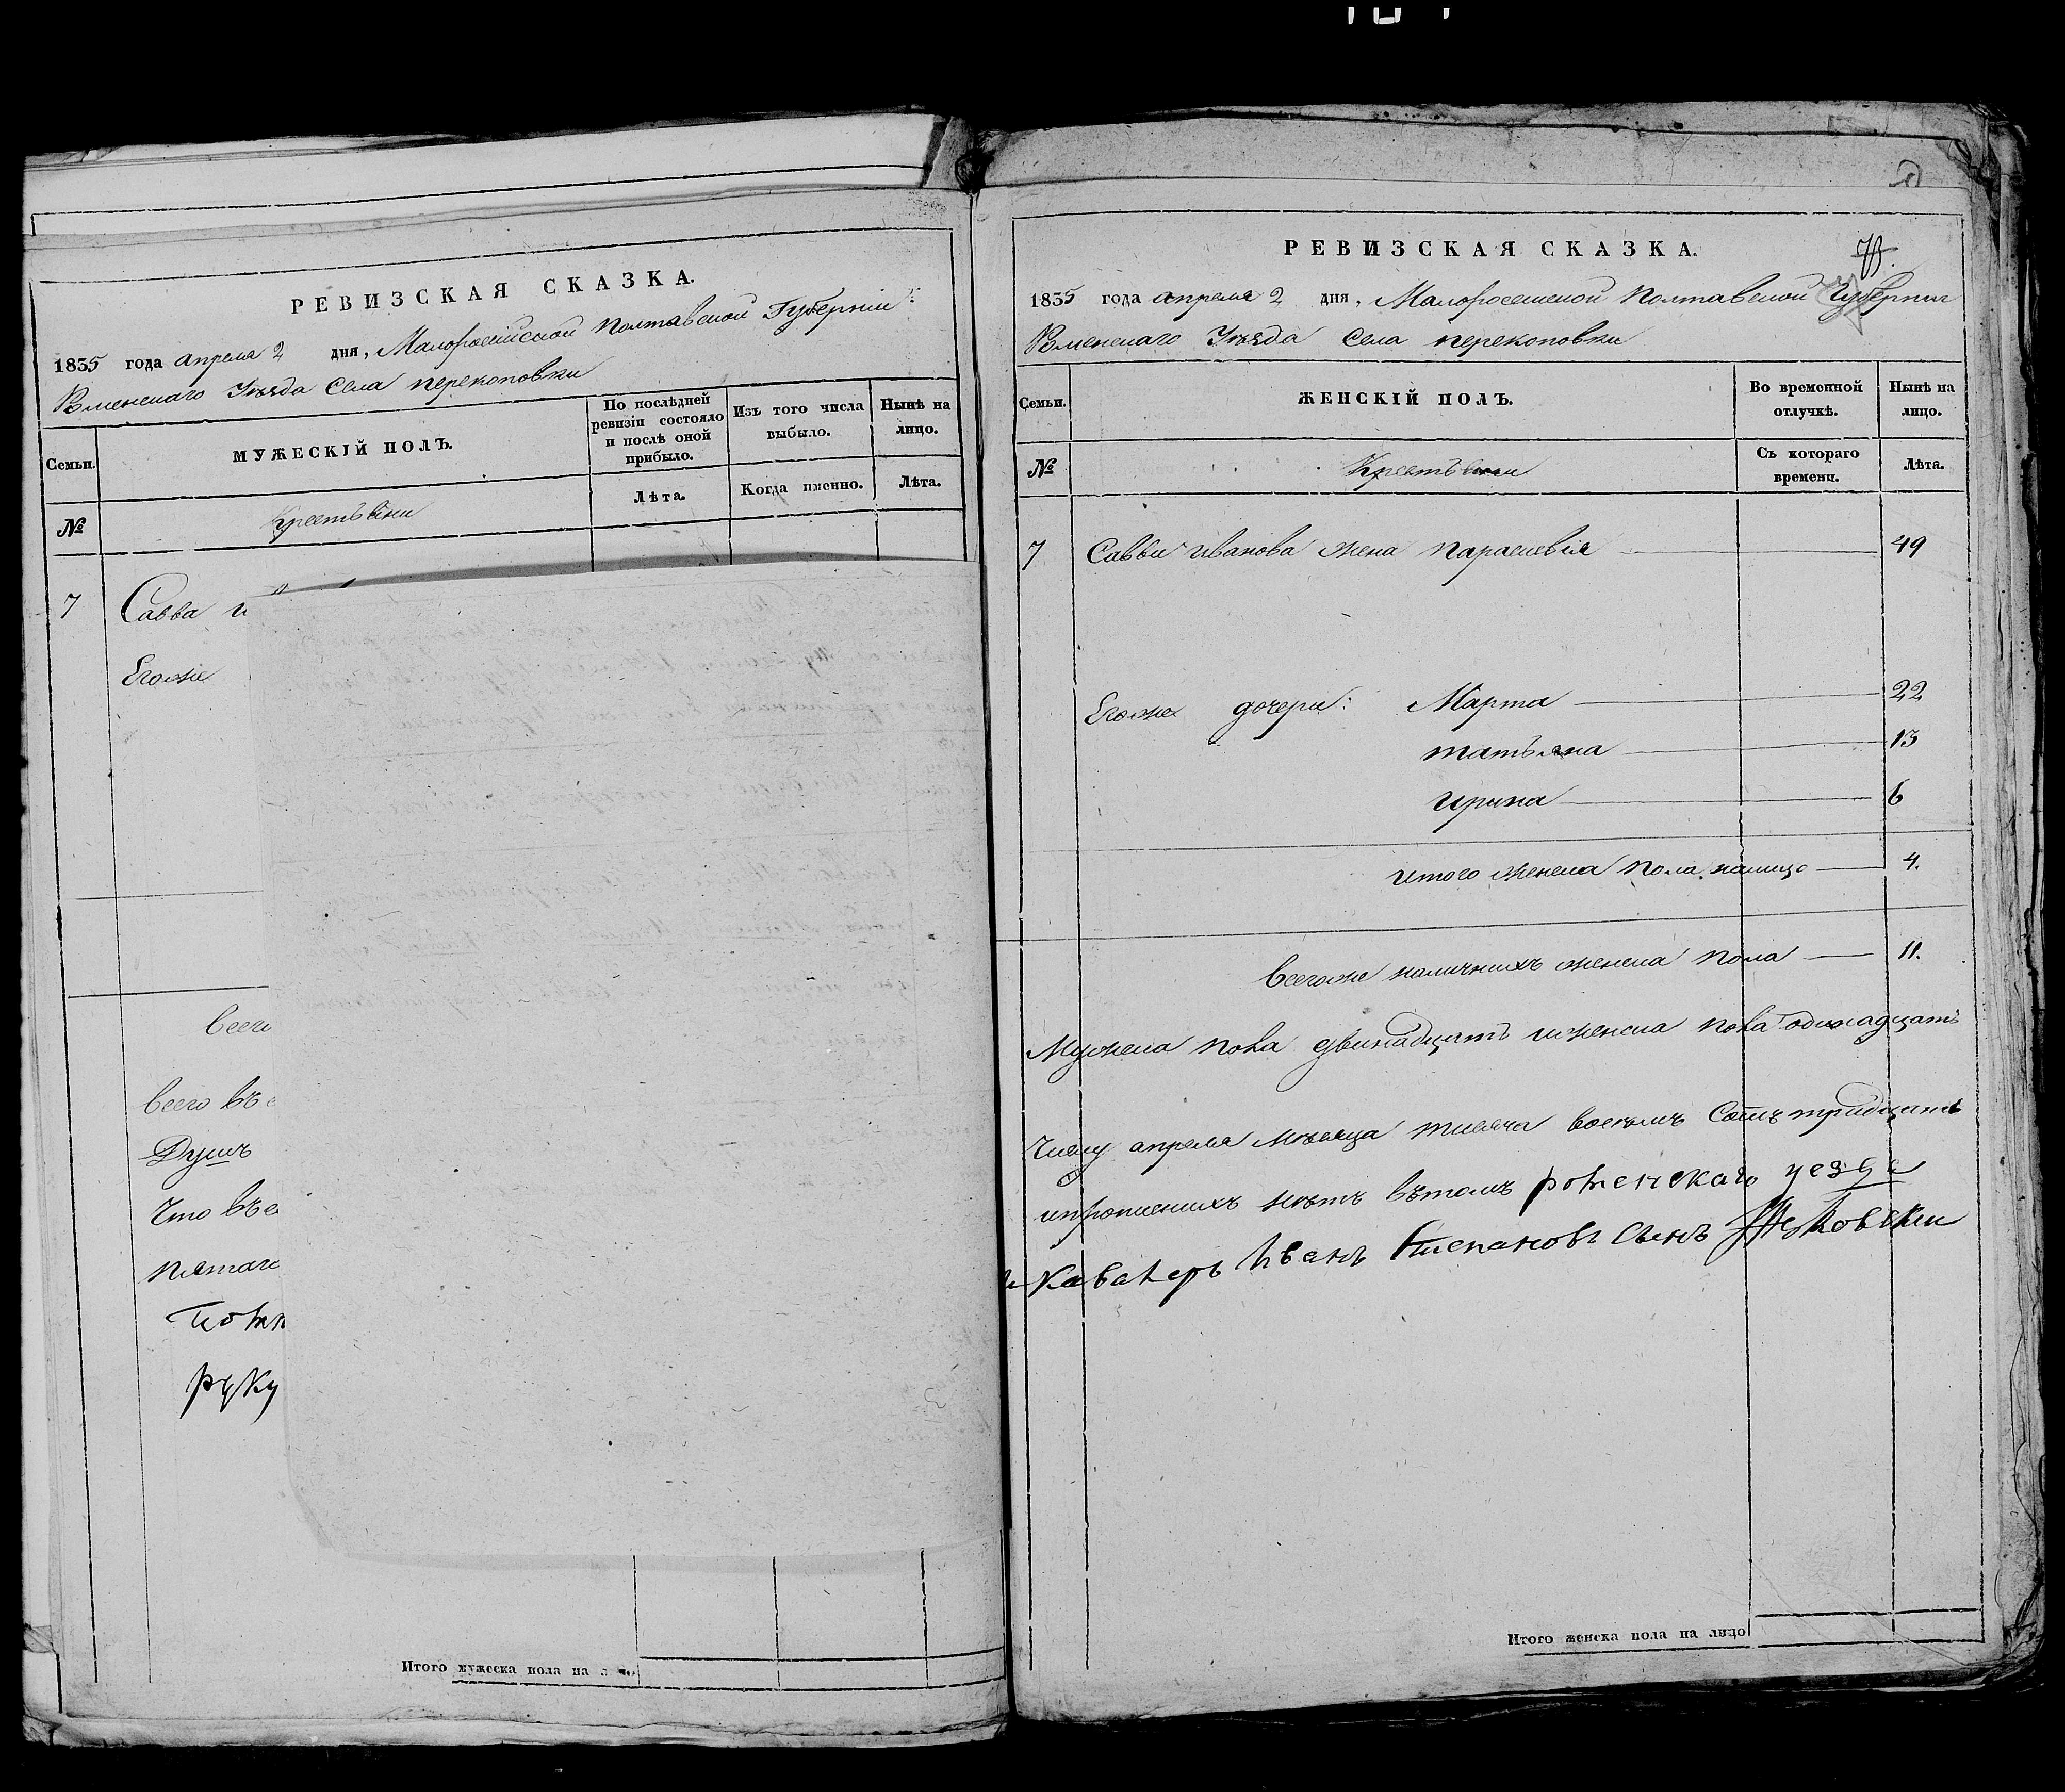 РЕВИЗСКАЯ СКАЗКА.
1835 года апреля 2 дня, Малоросійской Полтавской Губерніи
Роменскаго Уѣзда Села перекоповки
Семьи.
МУЖЕСКІЙ ПОЛЪ.
По послѣдней ревизіи состояло и послѣ оной прибыло.
Изъ того числа выбыло.
Нынѣ на лицо.
№
Крестьяни
Лѣта.
Когда именно.
Лѣта.
7 Савва
Егоже
всего
всего въ
Душъ
Что въ
пятаго
руку
Итого мужеска пола на лицо
РЕВИЗСКАЯ СКАЗКА.
1835 года апреля 2 дня, Малоросийской Полтавской Губернии
Роменскаго Уѣзда Села перекоповки
Семьи.
ЖЕНСКІЙ ПОЛЪ.
Во временной отлучкѣ.
Нынѣ на лицо.
№
Крестьяни
Съ котораго времени.
Лѣта.
7 Саввы иванова жена параскевія 49
Егоже дочери: Марта 22
татьяна 13
ирина 6
итого женска пола налицо 4.
всегоже наличнихъ женска пола 11.
Мужеска пола двинадцать и женска пола одинадцать
Числу апреля мѣсяца тисяча восемъ сотъ тридцать
ипрописнихъ нѣтъ вътомъ роменскаго уезда
и каваперъ Иванъ Степановъ сынъ
Итого женска пола на лицо